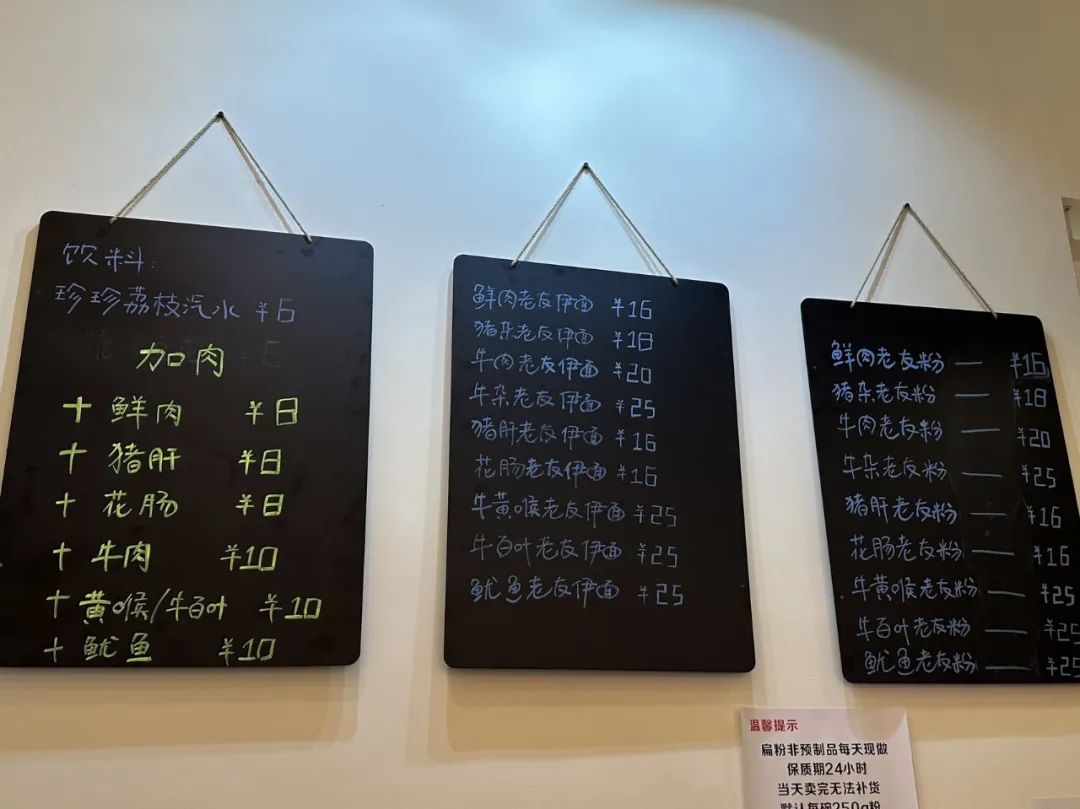 饮料:
珍珍荔枝汽水 ¥6
加肉
+ 鲜肉 ¥8
+ 猪肝 ¥8
+ 花肠 ¥8
+ 牛肉 ¥10
+ 黄喉/牛百叶 ¥10
+ 鱿鱼 ¥10
鲜肉老友伊面 ¥16
猪杂老友伊面 ¥18
牛肉老友伊面 ¥20
牛杂老友伊面 ¥25
猪肝老友伊面 ¥16
花肠老友伊面 ¥16
牛黄喉老友伊面 ¥25
牛百叶老友伊面 ¥25
鱿鱼老友伊面 ¥25
鲜肉老友粉 — ¥16
猪杂老友粉 — ¥18
牛肉老友粉 — ¥20
牛杂老友粉 — ¥25
猪肝老友粉 — ¥16
花肠老友粉 — ¥16
牛黄喉老友粉 — ¥25
牛百叶老友粉 — ¥25
鱿鱼老友粉 — ¥25
温馨提示
扁粉非预制品每天现做
保质期24小时
当天卖完无法补货
默认每碗250g粉